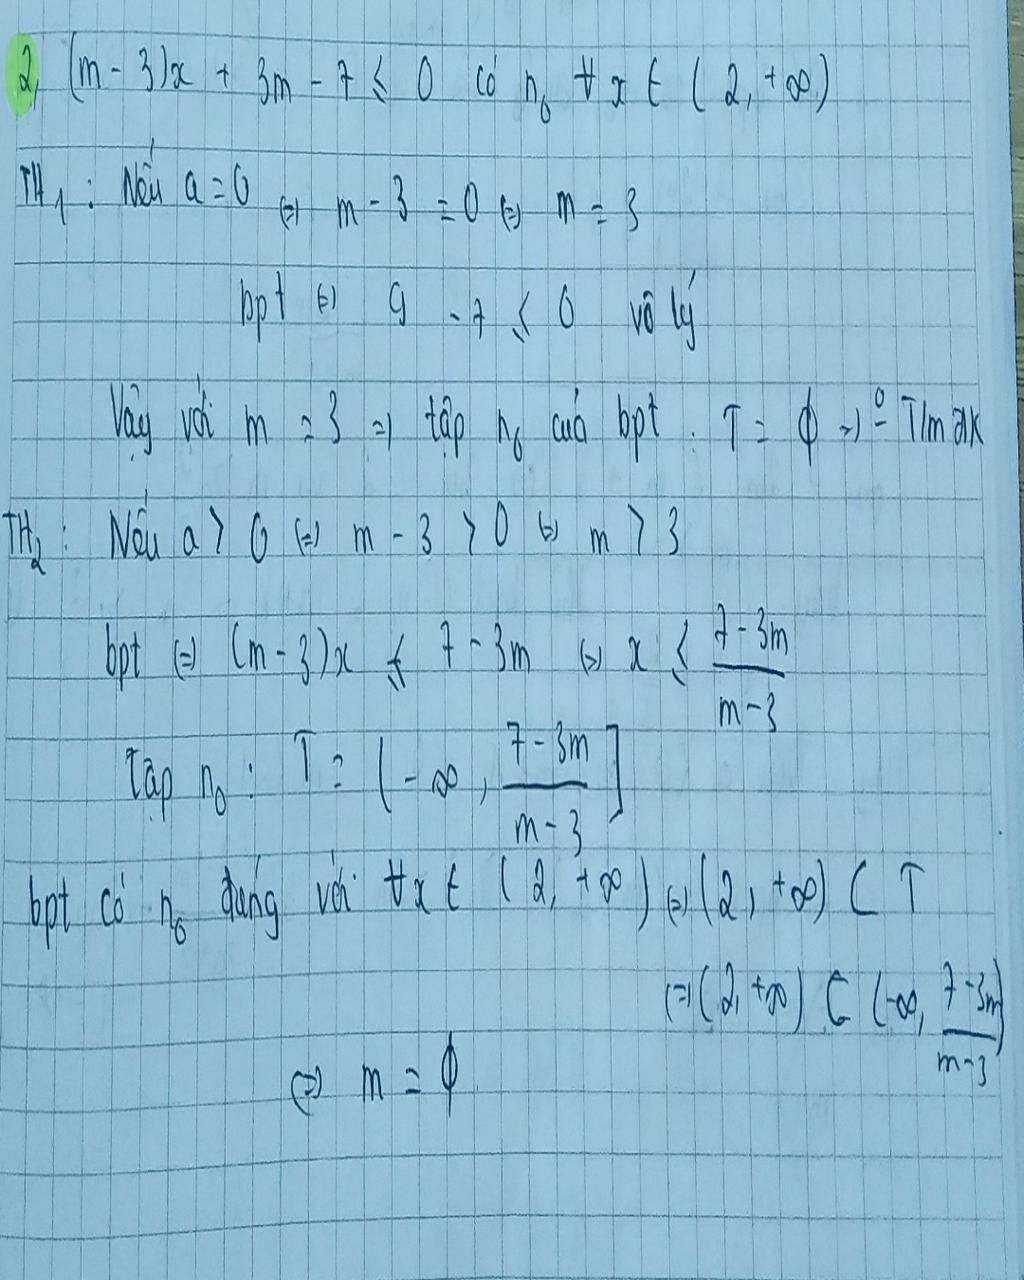 2, (m - 3)x + 3m - 7 ≤ 0 có n₀ ∀ x ∈ (2, +∞)
TH₁ : Nếu a = 0 (=) m - 3 = 0 (=) m = 3
bpt (=) 9 - 7 ≤ 0 vô lý
Vậy với m = 3 =) tập n₀ của bpt : T = ϕ -> ⁰- T/m đk
TH₂ : Nếu a > 0 (=) m - 3 > 0 (=) m > 3
bpt (=) (m - 3)x ≤ 7 - 3m (=) x ≤ \frac{7 - 3m}{m - 3}
Tập n₀ : T = (-∞, \frac{7 - 3m}{m - 3}]
bpt có n₀ đúng với ∀x ∈ (2, +∞) (=) (2, +∞) ⊂ T
(=) (2, +∞) ⊂ (-∞, \frac{7 - 3m}{m - 3})
(=) m = ϕ